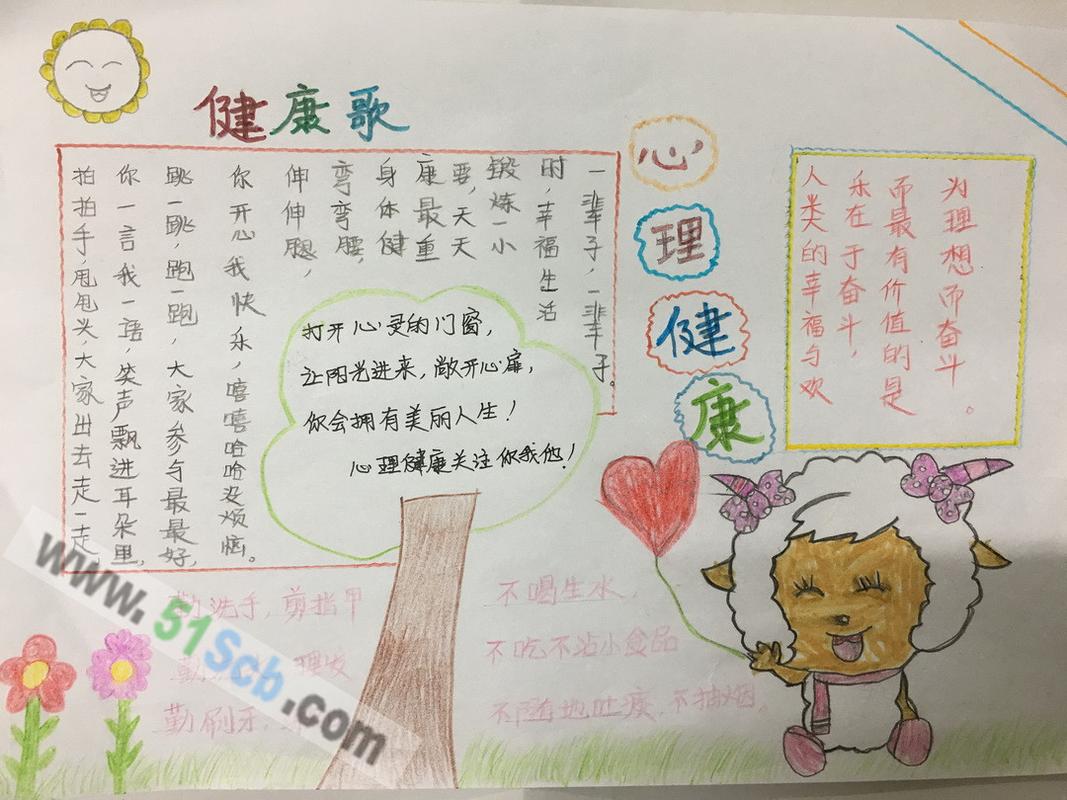 健康歌
拍拍手,甩甩头,大家出去走一走
你一言我一语,笑声飘进耳朵里,
跳一跳,跑一跑,大家参与最最好,
你开心我快乐,嘻嘻哈哈没烦恼。
伸伸腿,
弯弯腰,
身体健
康最重
要,天天
锻炼一小
时,幸福生活
一辈子,一辈子。
打开心灵的门窗,
让阳光进来,敞开心扉,
你会拥有美丽人生!
心理健康关注你我他!
心理健康
人类的幸福与欢
乐在于奋斗,
而最有价值的是
为理想而奋斗。
勤洗手,剪指甲
勤 理发
勤刷牙,
不喝生水,
不吃不沾小食品
不随地吐痰.不抽烟。
www.51Scb.com